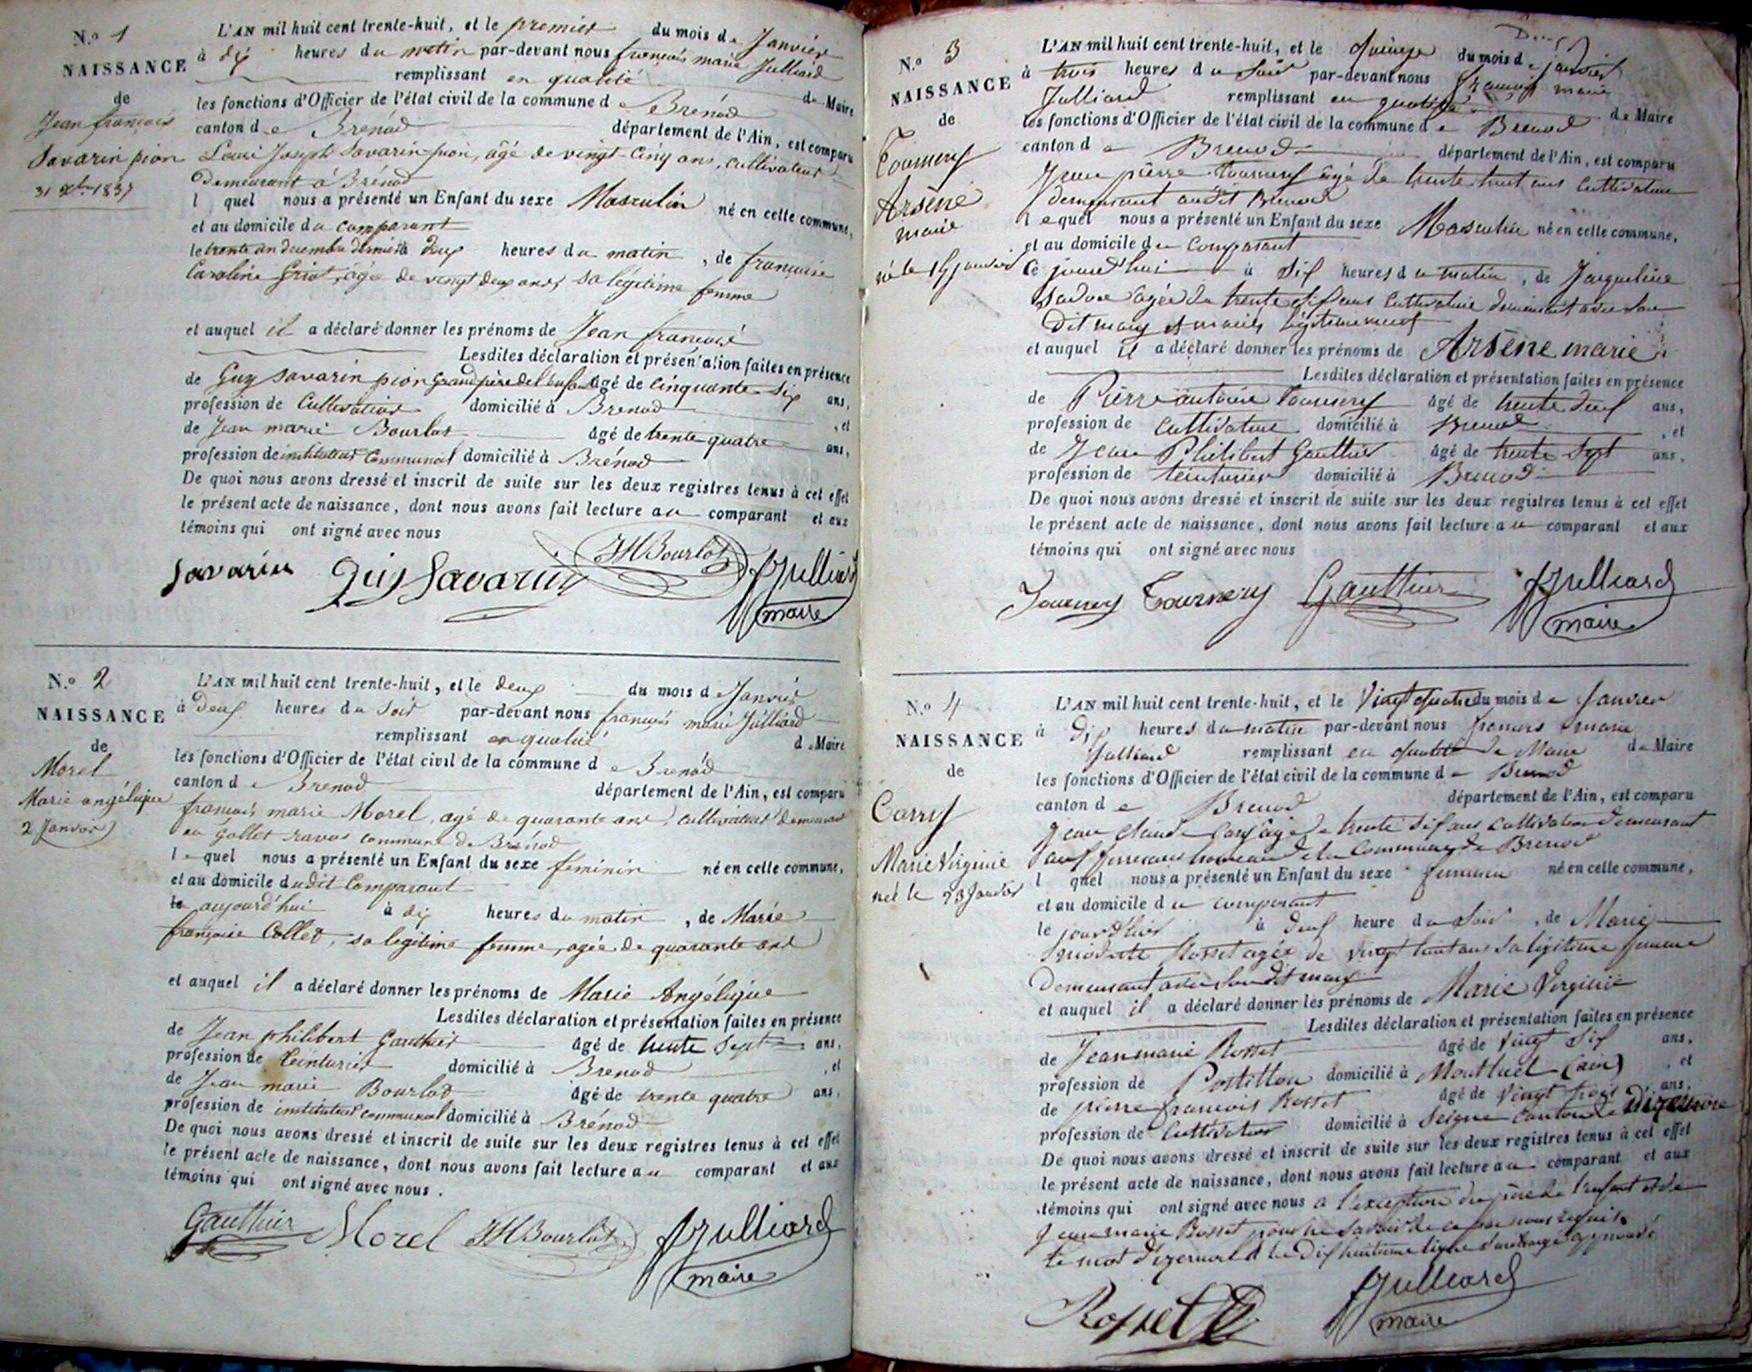 N.º 1
NAISSANCE
de
Jean françois
Savarin pion
31 Xbre 1837
L'AN mil huit cent trente-huit, et le premier du mois de Janvier
à dix heures du matin par-devant nous françois marie Julliard
remplissant en qualité de Maire
les fonctions d'Officier de l'état civil de la commune de Brénod
canton de Brénod département de l'Ain, est comparu
Louis Joseph Savarin-pion, âgé de vingt-cinq ans, cultivateur
Demeurant à Brénod
l quel nous a présenté un Enfant du sexe Masculin né en cette commune,
et au domicile du comparant
le trente un decembre dernier à deux heures du matin, de françoise
Caroline Griot, âgée de vingt deux ans, sa légitime femme
et auquel il a déclaré donner les prénoms de Jean françois
Lesdites déclaration et présentation faites en présence
de Guy Savarin pion Grand père de l'enfant âgé de cinquante-six ans,
profession de Cultivateur domicilié à Brenod, et
de Jean marie Bourlot âgé de trente quatre ans,
profession de instituteur communal domicilié à Brénod
De quoi nous avons dressé et inscrit de suite sur les deux registres tenus à cet effet
le présent acte de naissance, dont nous avons fait lecture au comparant et aux
témoins qui ont signé avec nous
Savarin Guy Savarin JM Bourlot Julliard
maire
N.º 2
NAISSANCE
de
Morel
Marie angélique
2 Janvier
L'AN mil huit cent trente-huit, et le deux du mois de Janvier
à Deux heures du soir par-devant nous françois marie Julliard
remplissant en qualité de Maire
les fonctions d'Officier de l'état civil de la commune de Brenod
canton de Brenod département de l'Ain, est comparu
françois marie Morel, agé de quarante ans, cultivateur demeurant
au Gollet ravat commune de Brénod
lequel nous a présenté un Enfant du sexe féminin né en cette commune,
et au domicile dudit Comparant
le aujourd'hui à dix heures du matin, de Marie
françoise Collet, sa légitime femme, agée de quarante ans
et auquel il a déclaré donner les prénoms de Marie Angélique
Lesdites déclaration et présentation faites en présence
de Jean philibert Gauthier âgé de trente sept ans,
profession de teinturier domicilié à Brenod, et
de Jean marie Bourlot âgé de trente quatre ans,
profession de instituteur communal domicilié à Brénod
De quoi nous avons dressé et inscrit de suite sur les deux registres tenus à cet effet
le présent acte de naissance, dont nous avons fait lecture au comparant et aux
témoins qui ont signé avec nous.
Gauthier Morel JM Bourlot Julliard
maire
N.º 3
NAISSANCE
de
Tournery
Arsène
marie
né le 15 janvier
L'AN mil huit cent trente-huit, et le quinze du mois de janvier
à trois heures du soir par-devant nous françois marie
Julliard remplissant en qualité de Maire
les fonctions d'Officier de l'état civil de la commune de Brenod
canton de Brenod département de l'Ain, est comparu
Jean pierre Tournery âgé de trente huit ans cultivateur
demeurant audit Brenod
lequel nous a présenté un Enfant du sexe Masculin né en cette commune,
et au domicile du comparant
Ce jourd'hui à six heures du matin, de Jacqueline
agée de trente six ans cultivatrice demeurant avec son
dit mary et mariés légitimement
et auquel il a déclaré donner les prénoms de Arsène marie
Lesdites déclaration et présentation faites en présence
de Pierre antoine Tournery âgé de trente deux ans,
profession de cultivateur domicilié à Brenod, et
de Jean Philibert Gauthier âgé de trente sept ans,
profession de teinturier domicilié à Brenod
De quoi nous avons dressé et inscrit de suite sur les deux registres tenus à cet effet
le présent acte de naissance, dont nous avons fait lecture au comparant et aux
témoins qui ont signé avec nous
Tournery Tournery Gauthier Julliard
maire
N.º 4
NAISSANCE
de
Carry
Marie Virginie
née le 23 Janvier
L'AN mil huit cent trente-huit, et le Vingt quatre du mois de Janvier
à dix heures du matin par-devant nous françois marie
Julliard remplissant en qualité de Maire de Maire
les fonctions d'Officier de l'état civil de la commune de Brenod
canton de Brenod département de l'Ain, est comparu
Jean claude Carry agé de trente six ans cultivateur demeurant
hameau de la Commune de Brenod
l quel nous a présenté un Enfant du sexe feminin né en cette commune,
et au domicile du comparant
le jour d'hier à deux heure du soir, de Marie
Rosset agée de vingt huit ans sa légitime femme
Demeurant avec son dit mary
et auquel il a déclaré donner les prénoms de Marie Virginie
Lesdites déclaration et présentation faites en présence
de Jean marie Rosset âgé de vingt six ans,
profession de Postillon domicilié à Montluel (ain), et
de pierre françois Rosset âgé de vingt trois ans,
profession de cultivateur domicilié à Seigne Canton de Dizernore
De quoi nous avons dressé et inscrit de suite sur les deux registres tenus à cet effet
le présent acte de naissance, dont nous avons fait lecture au comparant et aux
témoins qui ont signé avec nous a l'exception du père de l'enfant et de
Jean marie Rosset pour ne savoir de ce par nous requis.
le mot d'izernore à la Dix huitième ligne surchargé approuvé
Rosset Julliard
maire